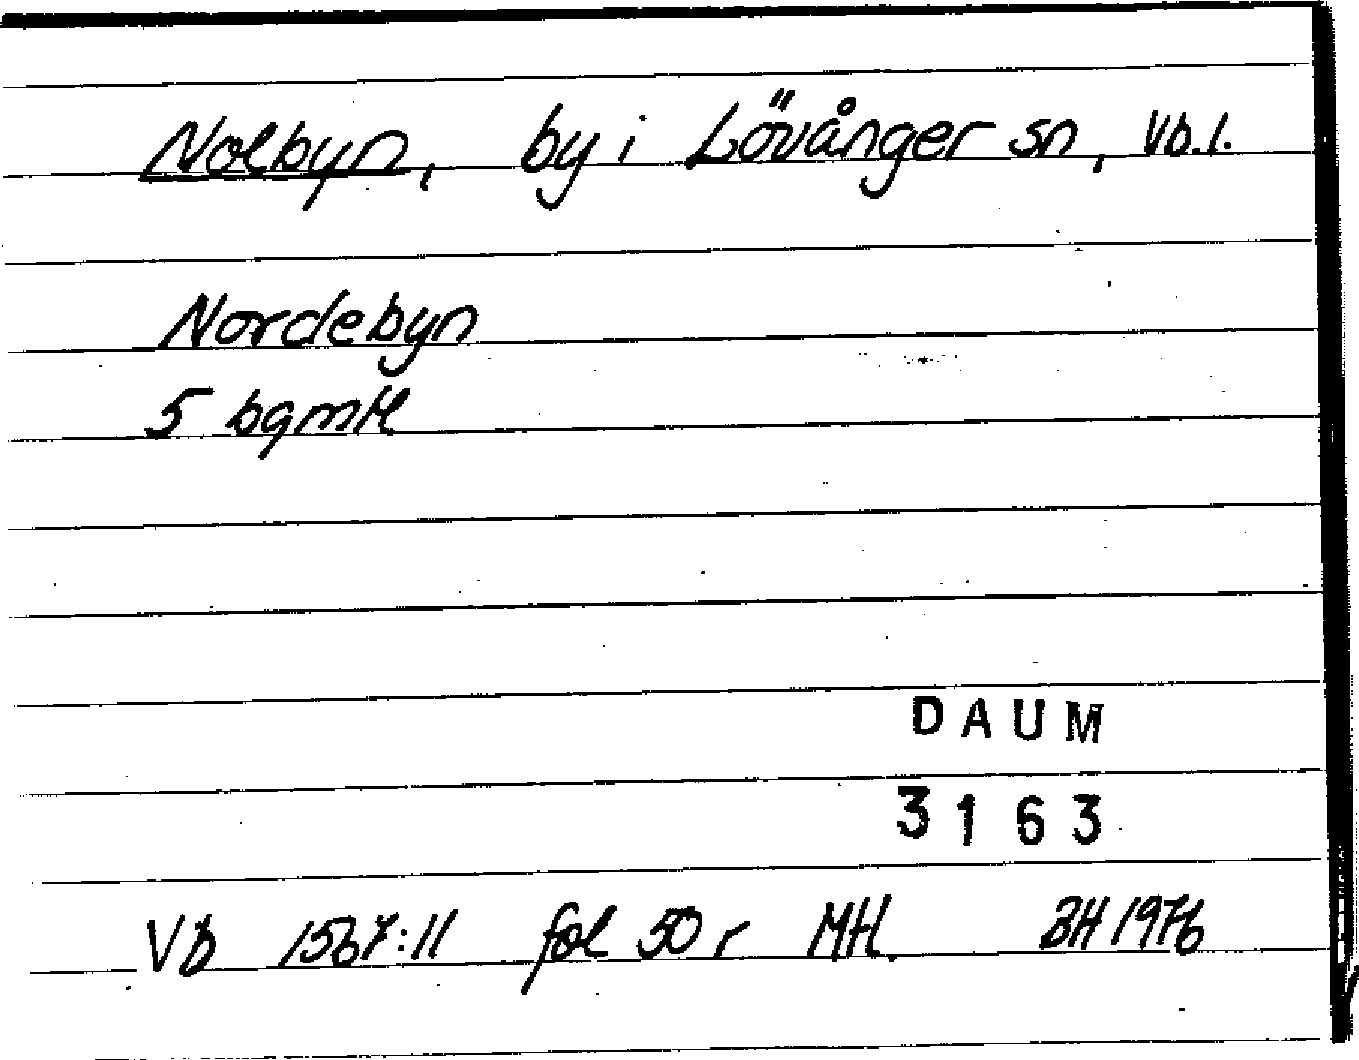 Nolbyn, by i Lövånger sn, Vb.l.
Nordebyn
5 bgmtl
DAUM
3163
Vb 1567:11 fol 50 r MH. BH 1976